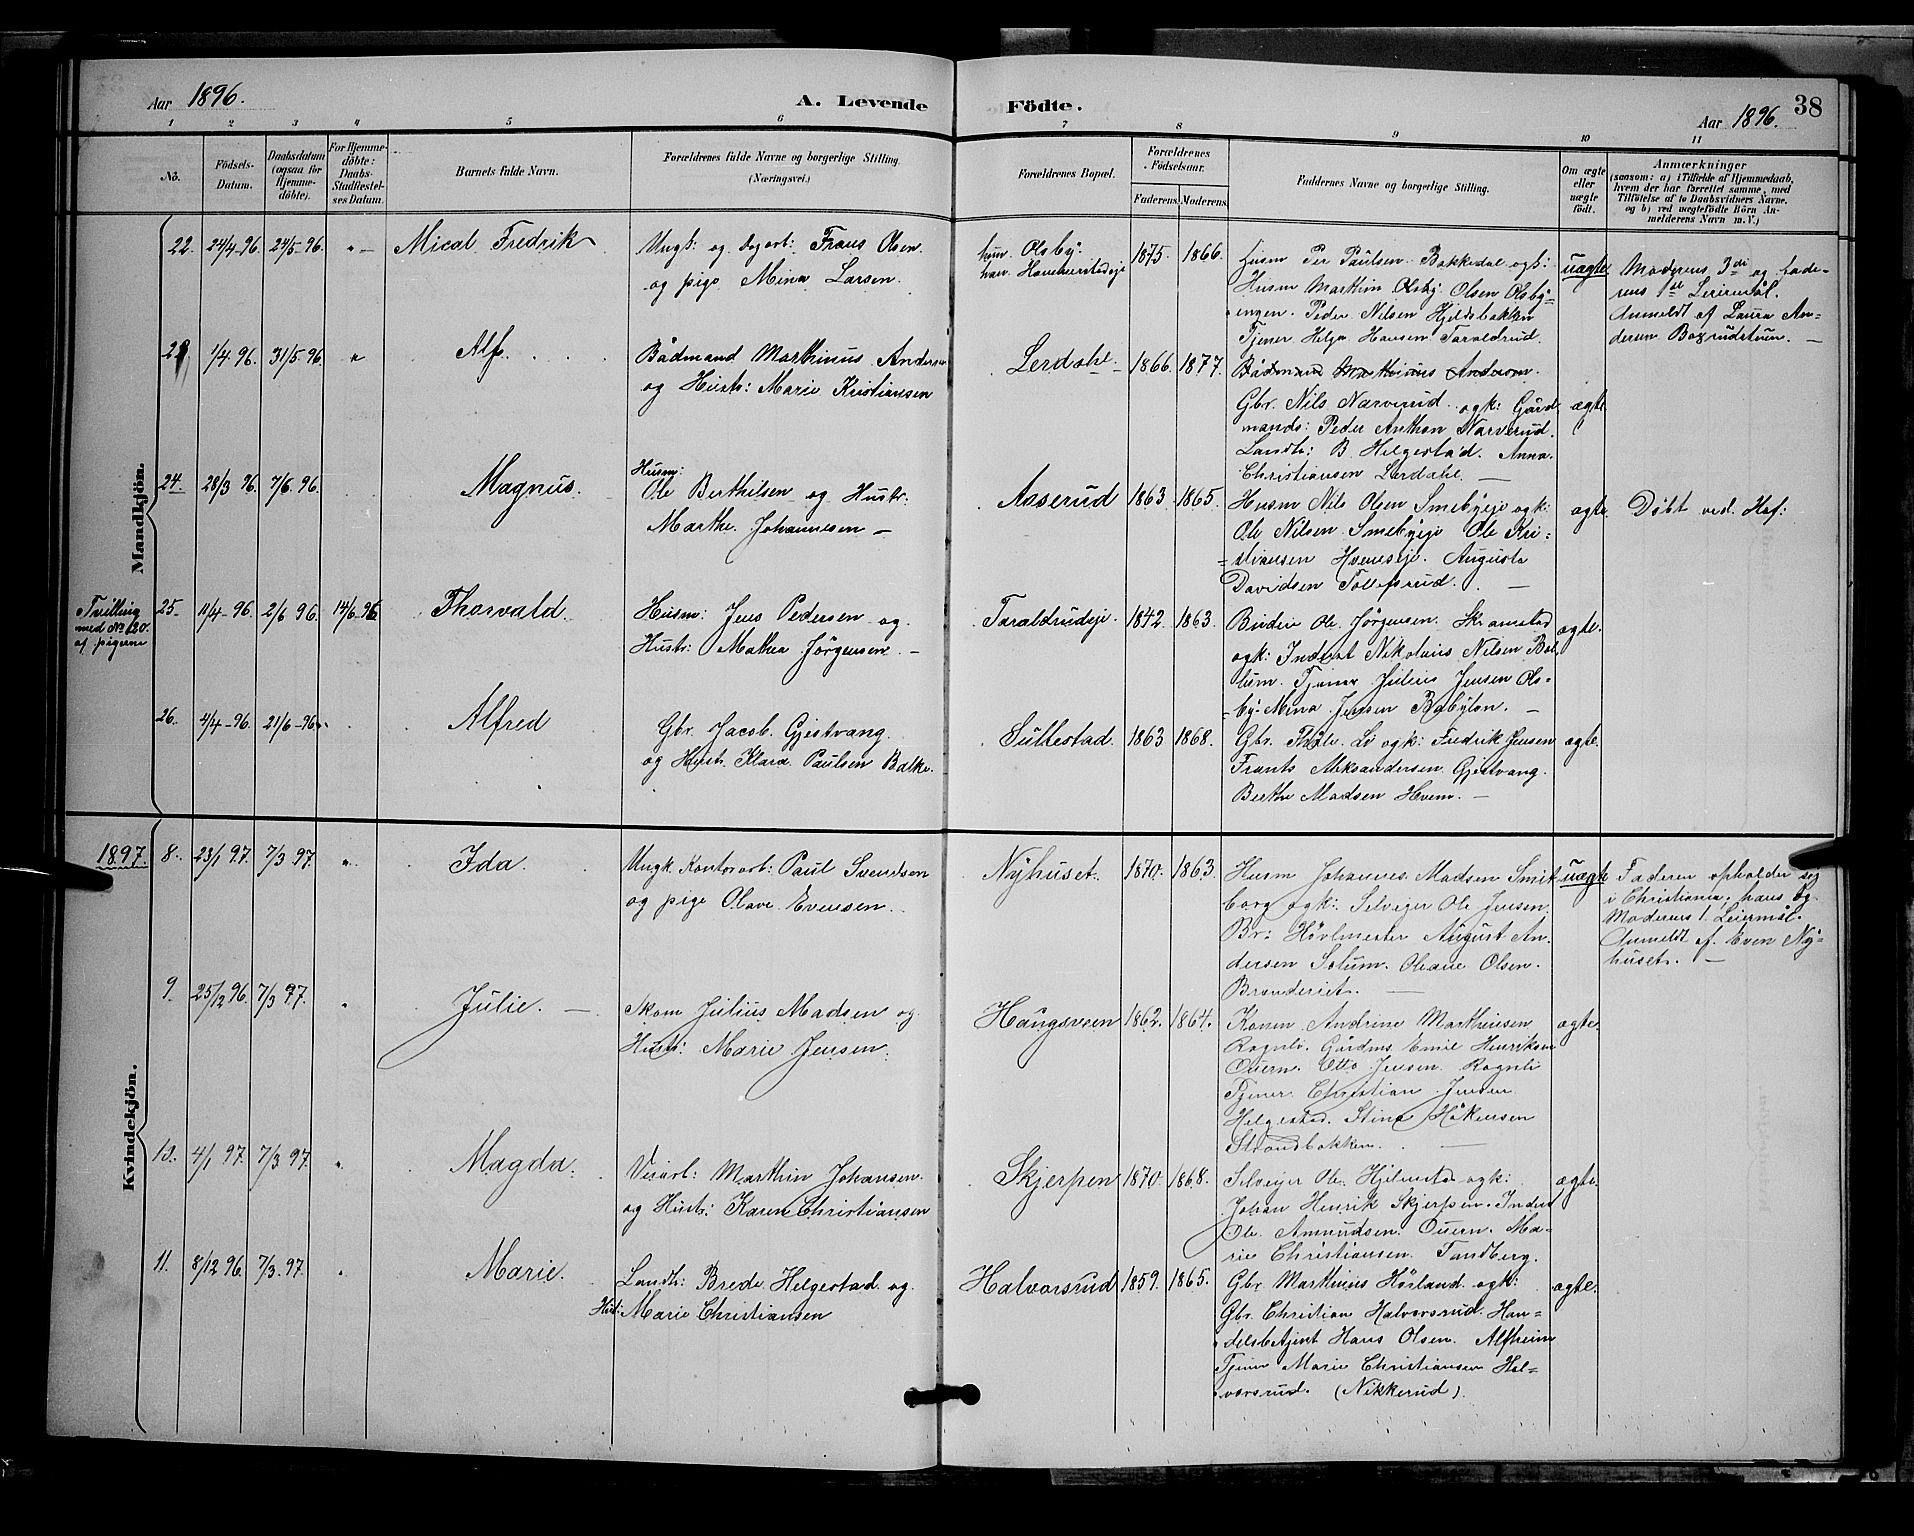 Aar 1896.
A. Levende Födte.
Aar 1896.
38
1 2 3 4 5 6 7 8 9 10 11
No.
Födsels-Datum.
Daabsdatum (ogsaa for Hjemmedöbte).
For Hjemmedöbte: Daabs-Stadfæstelses Datum.
Barnets fulde Navn.
Forældrenes fulde Navne og borgerlige Stilling. (Næringsvei.)
Forældrenes Bopæl.
Forældrenes Födselsaar.
Faderens. Moderens.
Faddernes Navne og borgerlige Stilling.
Om ægte eller uægte födt.
Anmærkninger
(saasom: a) i Tilfælde af Hjemmedaab,
hvem der har forrettet samme, med
Tilföielse af to Daabsvidners Navne.
og b) ved uægtefödte Börn An-
melderens Navn m. V.)
Mandkjön.
22. 24/4 96. 24/5-96. " Mical Fredrik
Ungk: og dagarb: Frans Olsen
og pige Mina Larsen.
hun. Olsby.
han
1875. 1866.
Husm Per Paulsen Bakkedal ogk:
Husm Marthin Olsby. Olsen Olsby=
engen. Peder Nilsen Hjeldsbakken
Tjener Helga Hansen Taraldrud.
uægte
Moderens 3die og fade-
rens 1ste Leiermål.
Anmeldt af Laura An=
dersen Boxrudstuen. —
1/4 96. 31/5 96. " Alf.
Bådmand Marthinus Andersen
og Hustr: Marie Kristiansen
Lerdahl 1866. 1877.
Bådmand Marthinus Andersen.
Gbr. Nils Narverud ogk: Gård
mands: Peder Anthon Narverud.
Landh: B. Helgestad. Anna
Christiansen Lerdahl. —
ægte
24. 28/3 96. 7/6. 96. Magnus.
Husm:
Ole Berthilsen og Hustr:
Marthe Johannesen —
Aaserud 1863 1865.
Husm Nils Olsen Smebyeje ogk:
Ole Nilsen Smebyeje Ole Kri=
=stiansen Hvemseje. Augusta
Davidsen Tollefsrud. —
ægte. Döbt ved Hof:
Tvilling
med No 20.
af pigerne
25. 11/4 96. 2/6 96. 14/6-96 Thorvald
Husm: Jens Pedersen og
Hustr: Mathea Jörgensen. —
Taraldrudeje. 1842. 1863.
Ole Jörgensen. Skramstad
ogk: Inderst Nikolaus Nilsen Bal
lum. Tjener Julius Jensen Ols=
=by. Mina Jensen Babylon. —
ægte.
26. 4/4-96. 21/6-96. Alfred
Gbr. Jacob Gjestvang.
og Hustr. Klara Paulsen Balke.
Sullestad. 1863 1868.
Gbr. Thole Li ogk: Fredrik Jensen
Frants Aleksandersen Gjestvang.
Berthe Madsen Hvem. —
ægte.
Kvindekjön.
1897. 8. 23/1 97. 7/3 97. " Ida
Ungk. Kontorarb: Paul Svendsen
og pige Olave Evensen.
Nyhuset. 1870. 1863.
Husm Johannes Madsen Smit
borg ogk: Selveier Ole Jensen
Br: Hövlmester August An
dersen Solum. Oleane Olsen.
Brænderiet. —
uægte
Faderen opholder sig
i Christiania, hans og
Moderens 1. Leiermål.
Anmeldt af Even Ny=
huset. —
9. 25/12 96. 7/3 97. " Julie. —
Skom Julius Madsen og
Hustr: Marie Jensen.
Haugsveen 1862. 1864.
Konen Andrine Marthinsen
Rognli. Gårdms Emil Henriksen
Ouern. Otto Jensen Rognli
Tjener Christian Jensen
Helgestad. Stina Håkensen
Strandbakken. —
ægte.
10. 4/1 97. 7/3 97. " Magda.
Veiarb: Marthin Johansen.
og Hustr: Karen Christiansen
Skjerpen 1870. 1868.
Selveier Ole Hjelmstad ogk:
Johan Henrik Skjerpen. Inderst
Ole Amundsen Ouern. Ma-
rie Christiansen Tandberg.
ægte.
11. 8/12 96. 7/3. 97. " Marie.
Landh: Brede Helgestad og
Hust: Marie Christiansen
Halvorsrud 1859. 1865.
Gbr Marthinus Hörland ogk:
Gbr. Christian Halvorsrud. Han=
delsbAjent Hans Olsen. Alfheim
Tjener Marie Christiansen Hal=
vorsrud. (Nikkerud).
ægte.